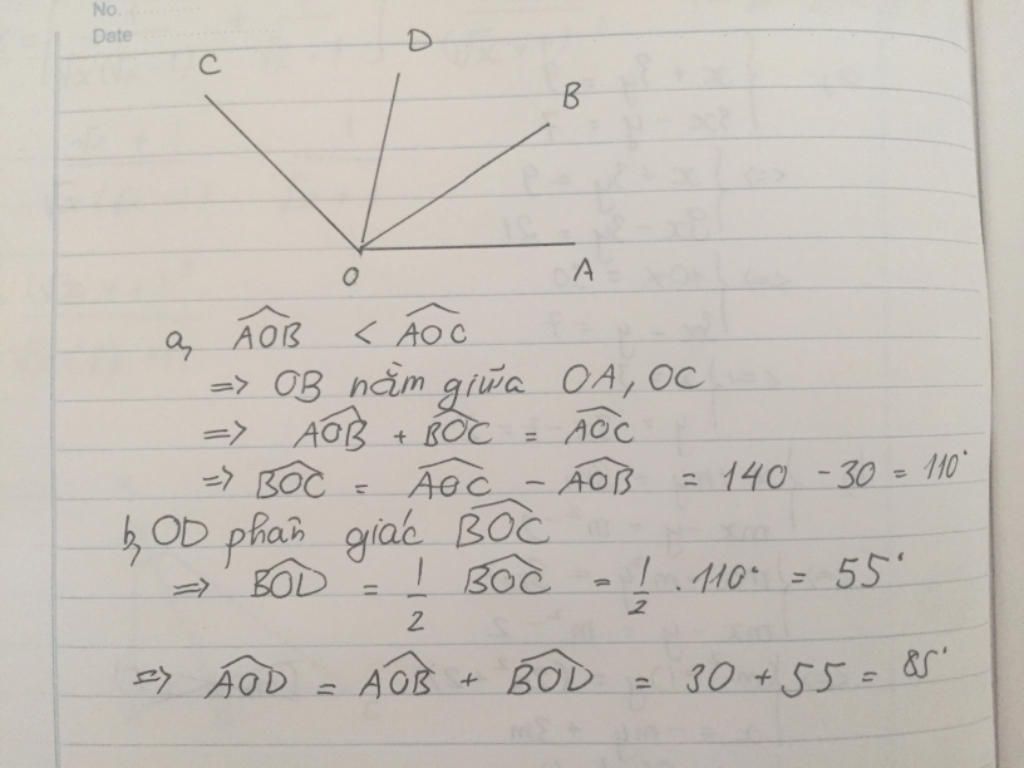 No.
Date
C
D
B
O
A
a, AOB < AOC
=> OB nằm giữa OA, OC
=> AOB + BOC = AOC
=> BOC = AOC - AOB = 140 - 30 = 110°
b, OD phân giác BOC
=> BOD = 1/2 BOC = 1/2 . 110° = 55°
=> AOD = AOB + BOD = 30 + 55 = 85°